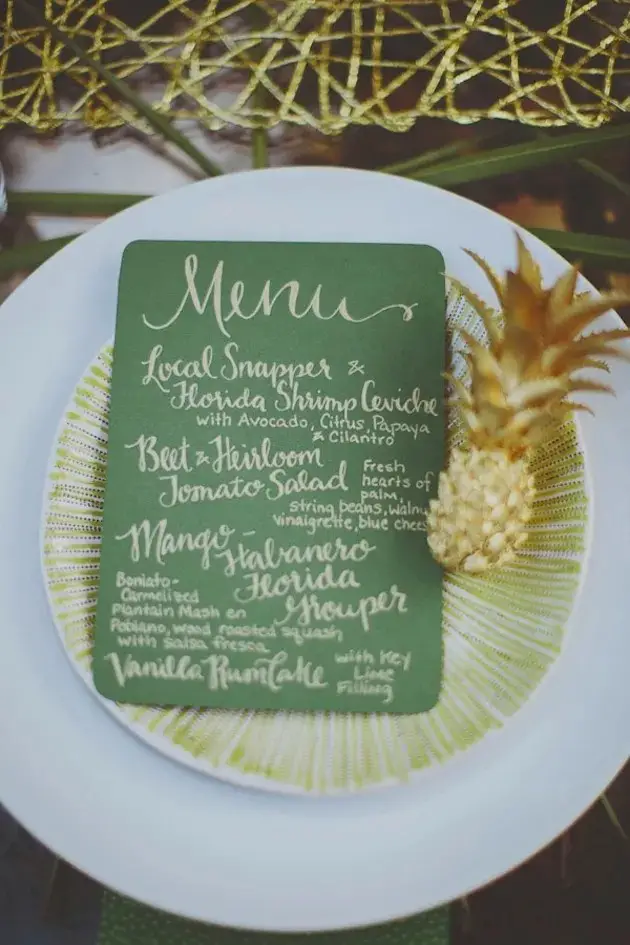 Menu
Local Snapper &
Florida Shrimp Ceviche
with Avocado, Citrus, Papaya
& Cilantro
Beet & Heirloom
Tomato Salad
Fresh
hearts of
palm,
string beans, Walnu
vinaigrette, blue chees
Mango-
Habanero
Florida
Grouper
Boniato-
Carmelized
Plantain Mash en
Poblano, wood roasted squash
with salsa fresca
Vanilla Rum Cake
with Key
Lime
Filling